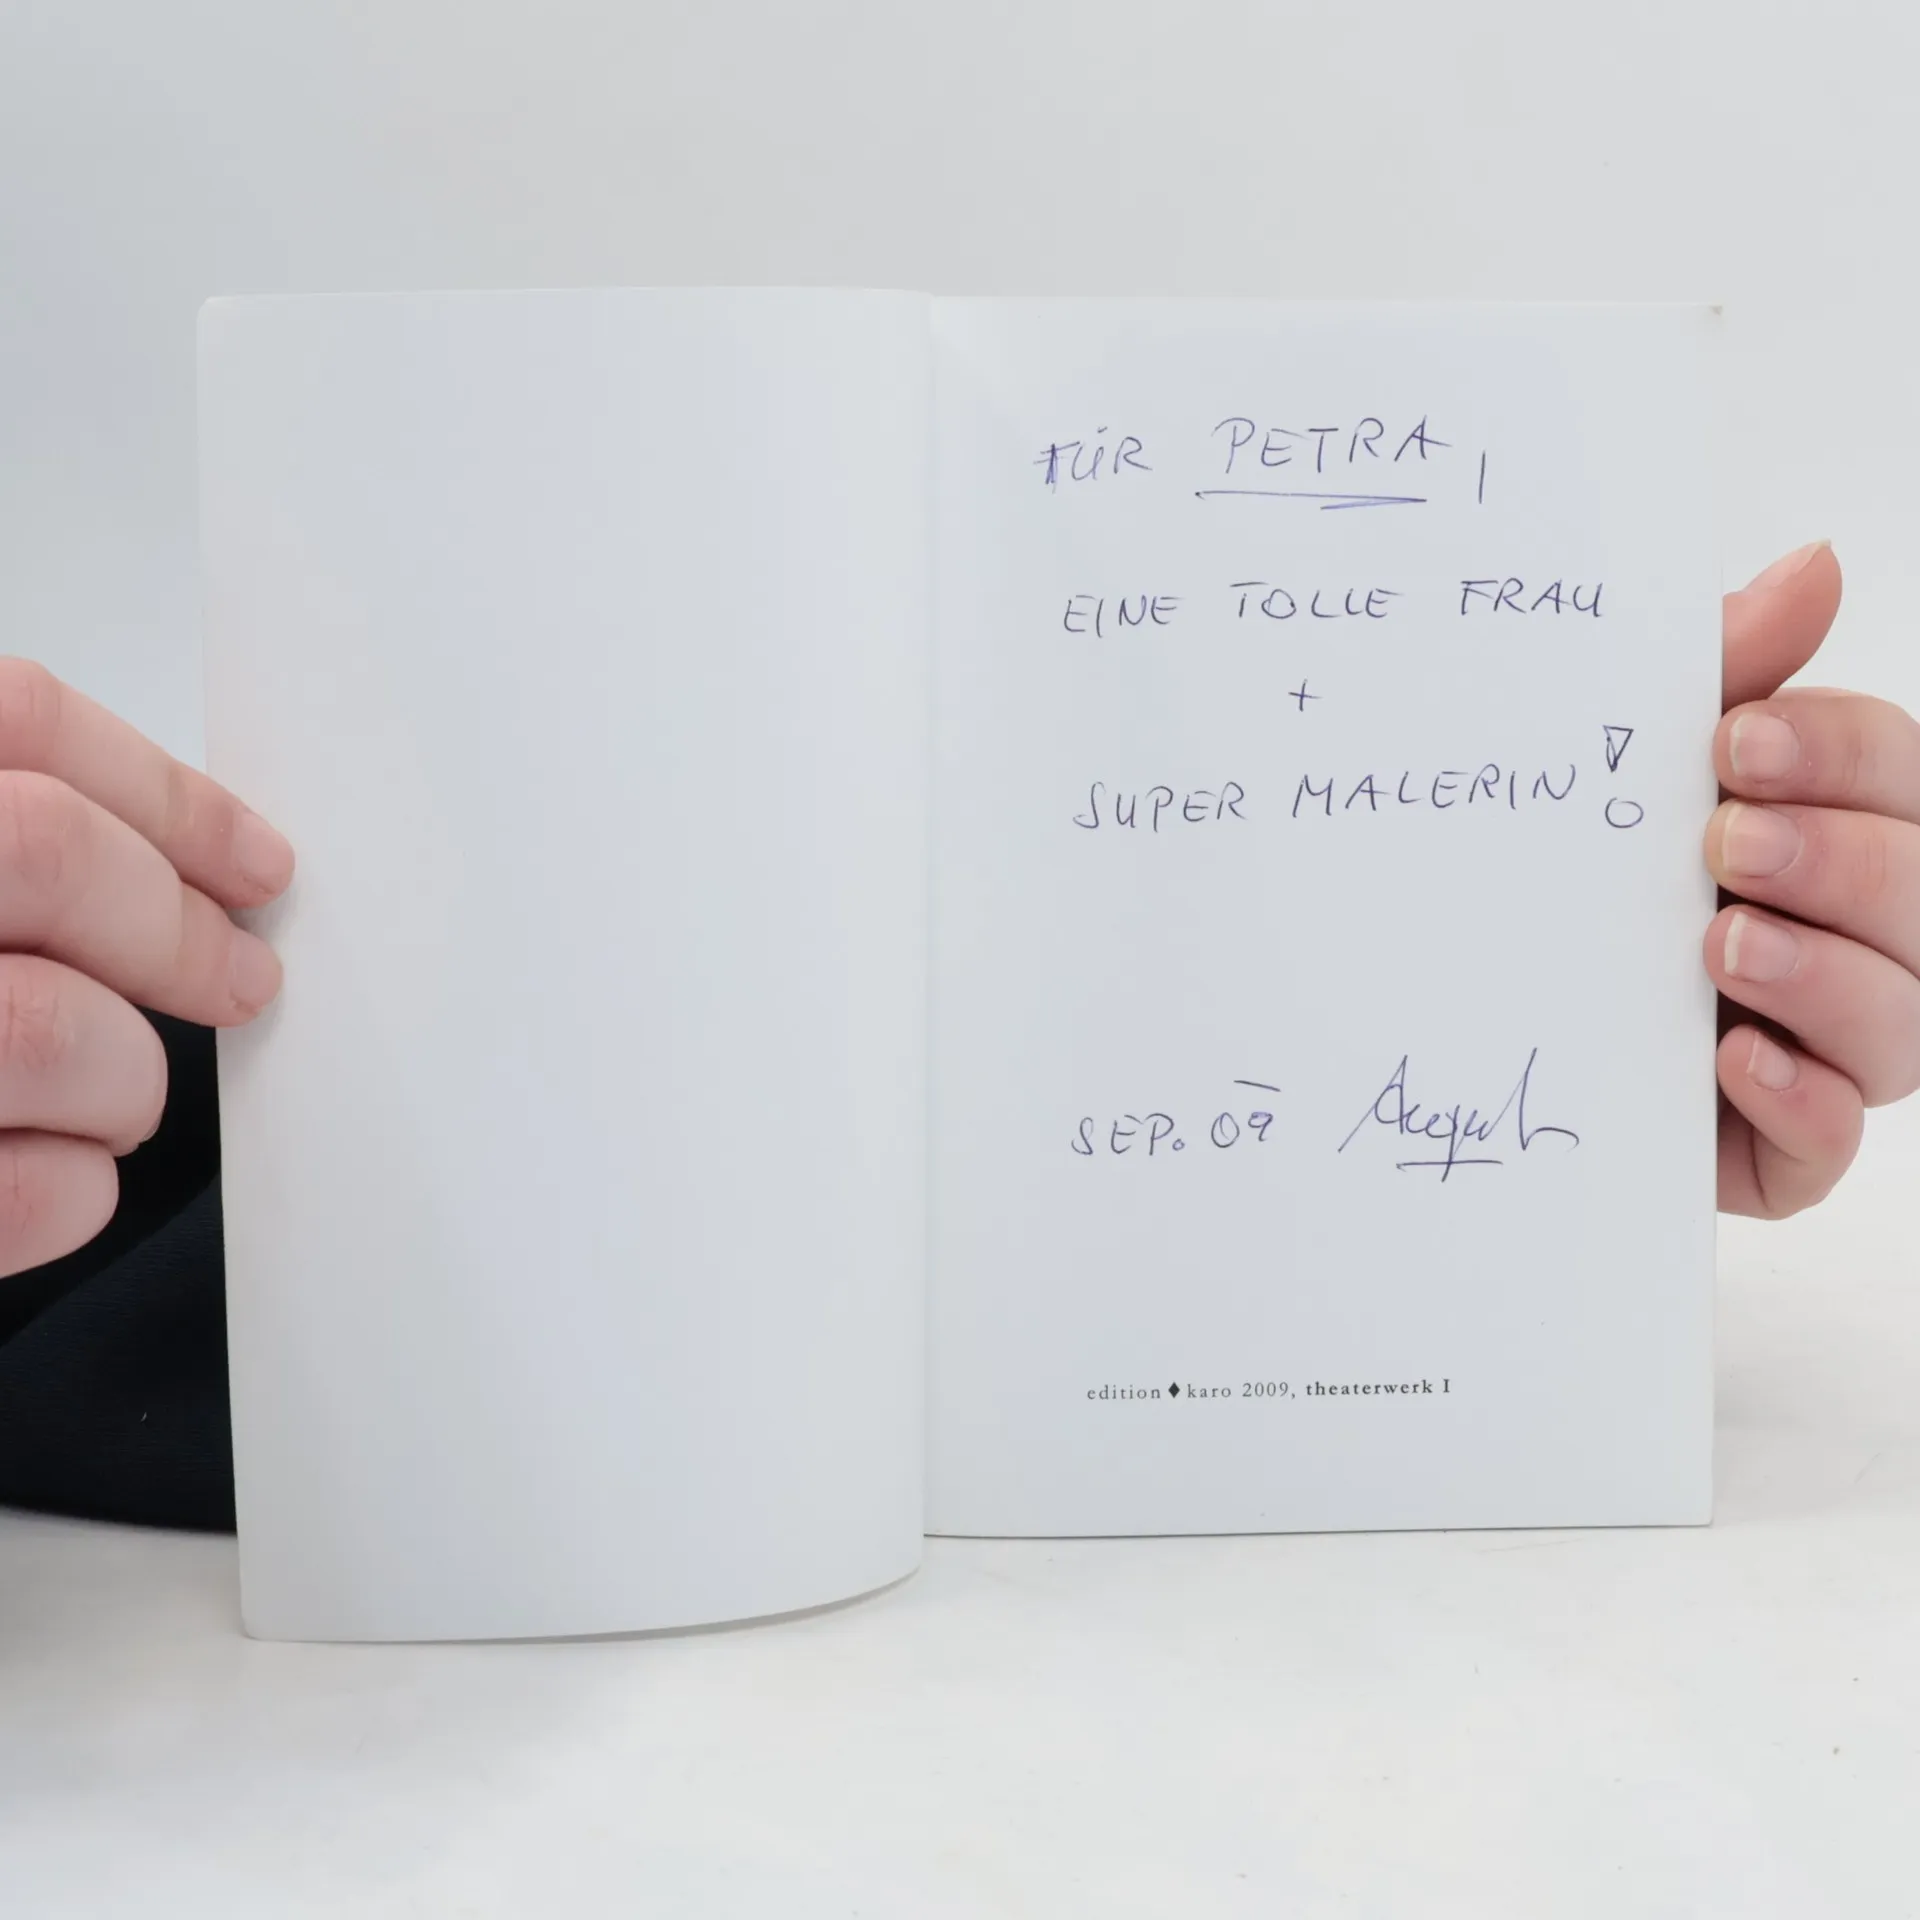 FÜR PETRA,
EINE TOLLE FRAU
+
SUPER MALERIN!
SEP. 09
edition♦karo 2009, theaterwerk I